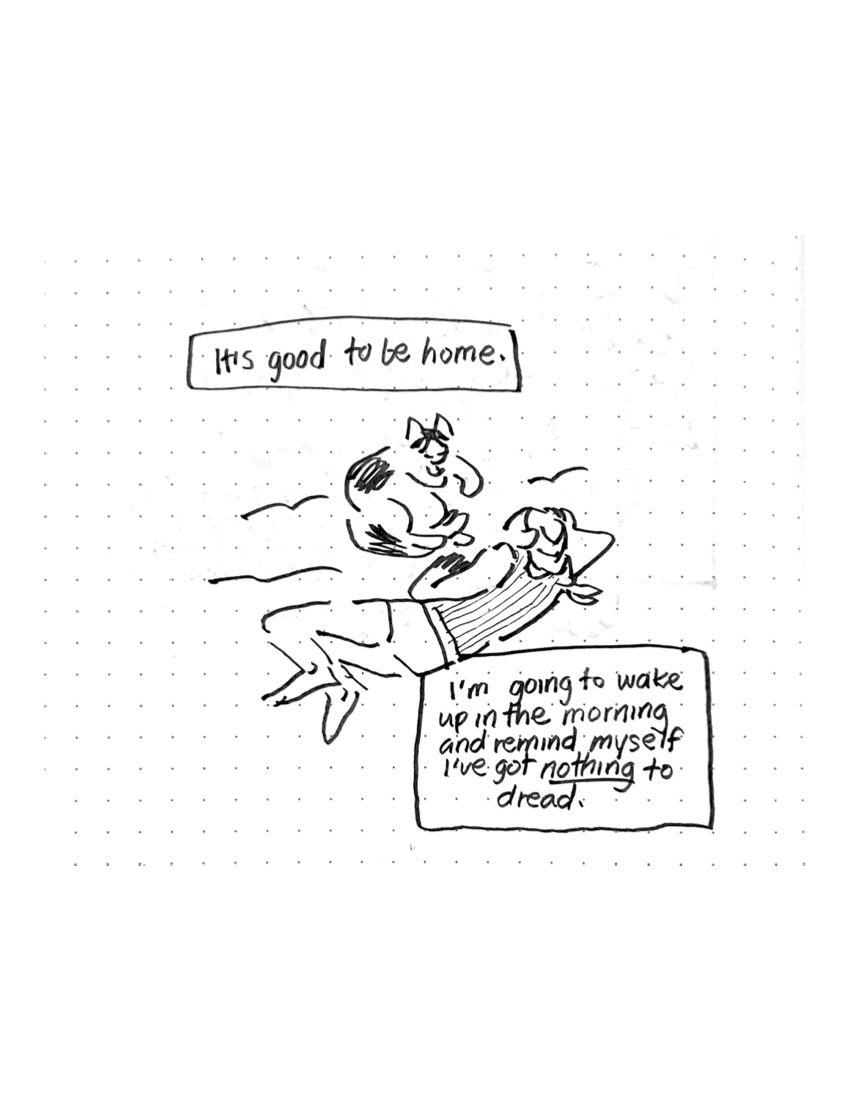 It's good to be home.
I'm going to wake
up in the morning
and remind myself
I've got nothing to
dread.